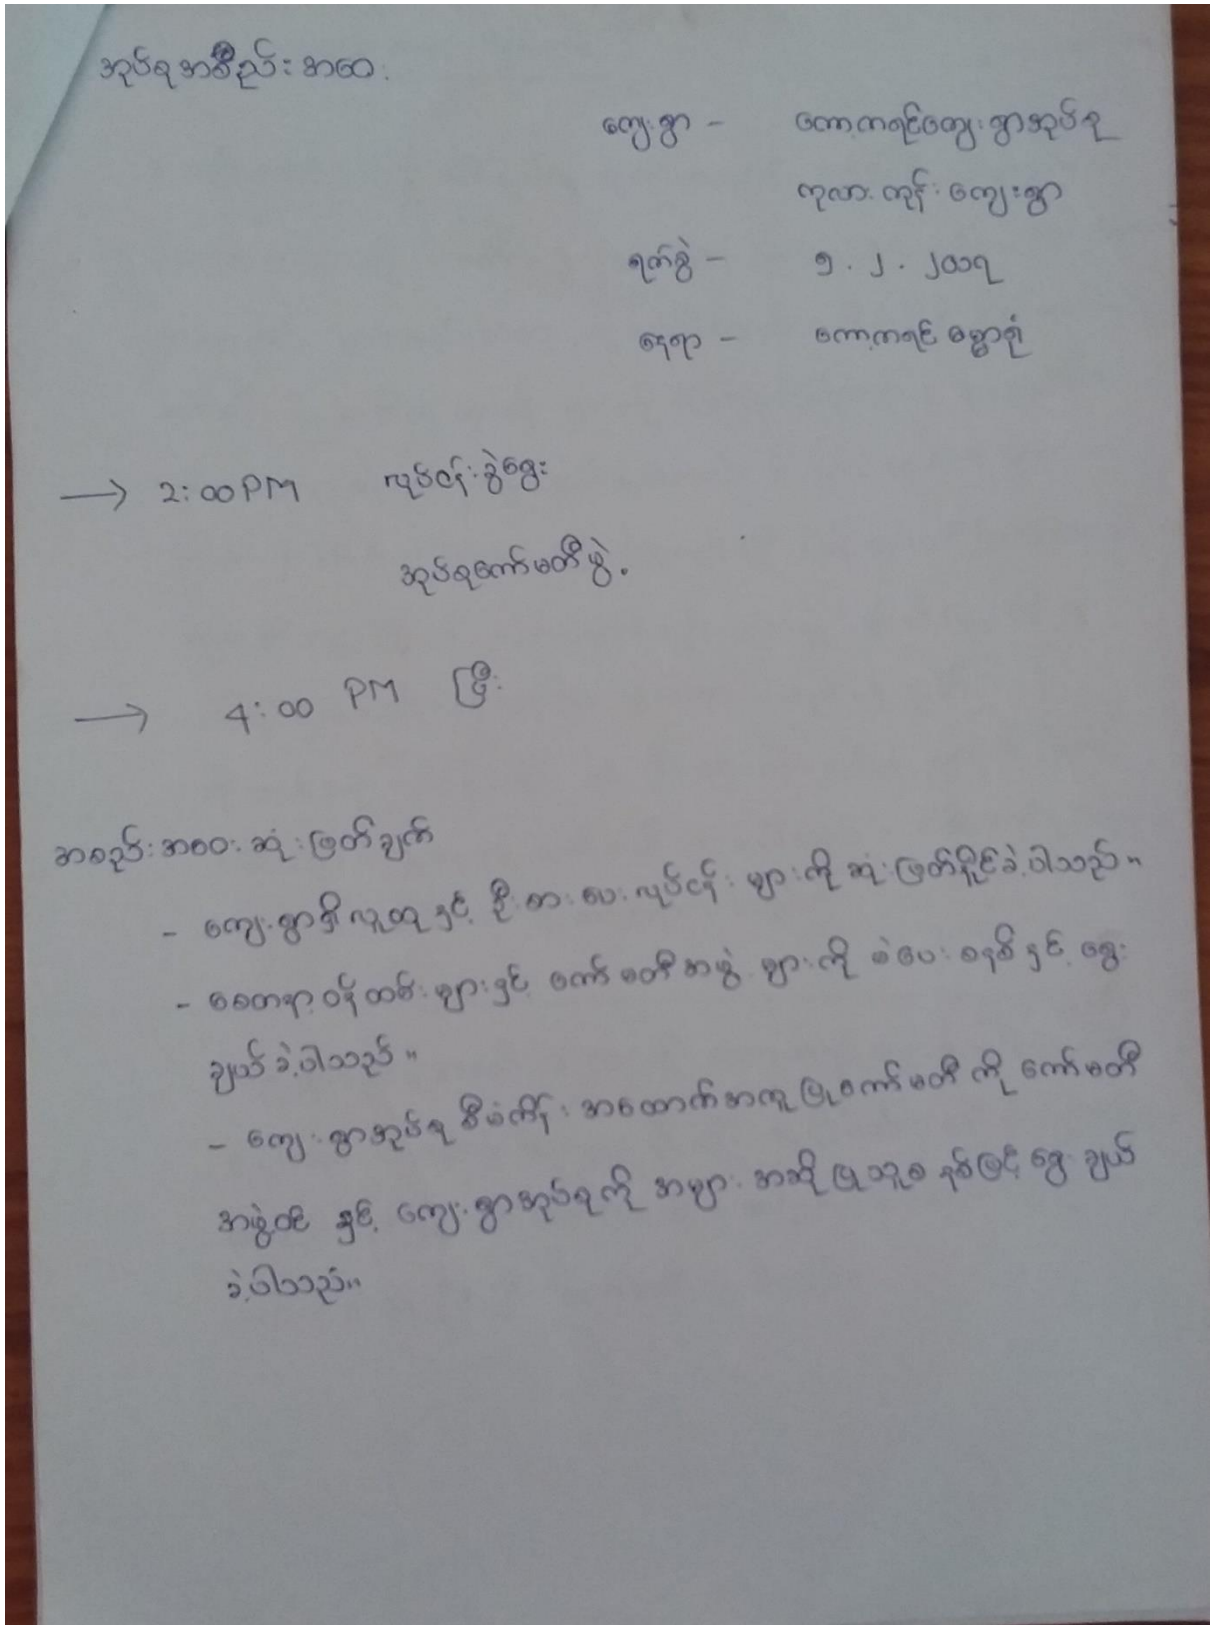 အုပ်စုအစည်းအဝေး
ကျေးရွာ - ကော့ကရင်ကျေးရွာအုပ်စု
ကုလားကုန်းကျေးရွာ
ရက်စွဲ - ၅.၂.၂၀၁၇
နေရာ - ကော့ကရင် ဓမ္မာရုံ
→ 2:00 PM လုပ်ငန်းခွဲဝေွး
အုပ်စုကော်မတီဖွဲ့
→ 4:00 PM ပြီး
အစည်းအဝေးဆုံးဖြတ်ချက်
- ကျေးရွာရှိလူထုနှင့် ဦးစားပေးလုပ်ငန်းများကို ဆုံးဖြတ်နိုင်ခဲ့ပါသည်။
- စေတနာ့ဝန်ထမ်းများနှင့် ကော်မတီအဖွဲ့များကို မဲပေးစနစ်နှင့် ရွေး
ချယ်ခဲ့ပါသည်။
- ကျေးရွာအုပ်စု စီမံကိန်းအထောက်အကူပြုကော်မတီကို ကော်မတီ
အဖွဲ့ဝင် နှင့် ကျေးရွာအုပ်စုကို အများအဆိုပြုသူစနစ်ဖြင့် ရွေးချယ်
ခဲ့ပါသည်။